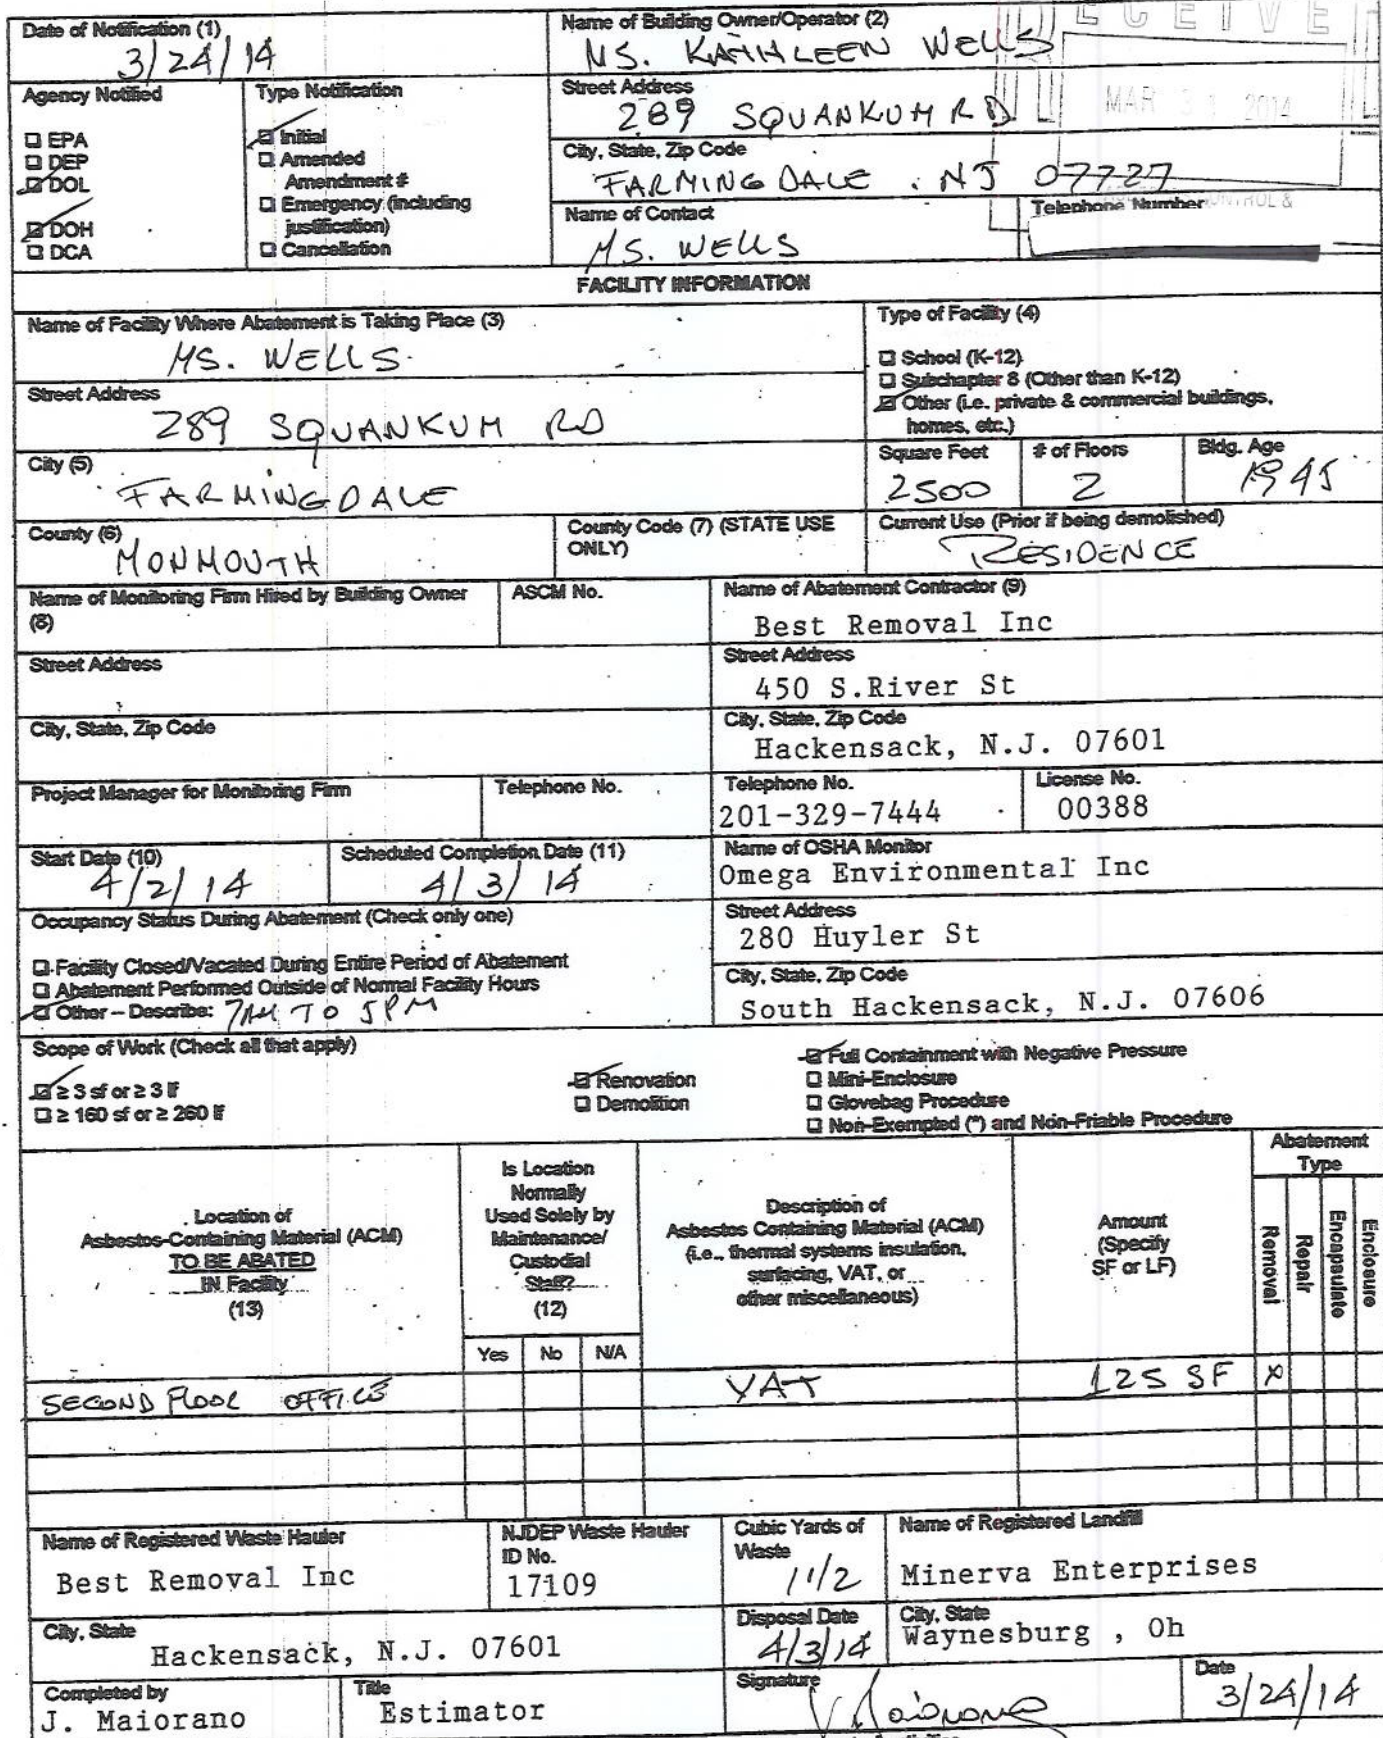 Date of Notification (1)
3/24/14
Name of Building Owner/Operator (2)
MS. KATHLEEN WELLS
RECEIVE
MAR 31 2014
Agency Notified
☐ EPA
☐ DEP
☑ DOL
☑ DOH
☐ DCA
Type Notification
☑ Initial
☐ Amended
Amendment #
☐ Emergency (including
justification)
☐ Cancellation
Street Address
289 SQUANKUM RD
City, State, Zip Code
FARMINGDALE . NJ 07727
Name of Contact
MS. WELLS
Telephone Number
CONTROL &
FACILITY INFORMATION
Name of Facility Where Abatement is Taking Place (3)
MS. WELLS
Type of Facility (4)
☐ School (K-12)
☐ Subchapter 8 (Other than K-12)
☑ Other (i.e. private & commercial buildings,
homes, etc.)
Street Address
289 SQUANKUM RD
City (5)
FARMINGDALE
Square Feet
2500
# of Floors
2
Bldg. Age
1945
County (6)
MONMOUTH
County Code (7) (STATE USE
ONLY)
Current Use (Prior if being demolished)
RESIDENCE
Name of Monitoring Firm Hired by Building Owner
(8)
ASCM No.
Name of Abatement Contractor (9)
Best Removal Inc
Street Address
Street Address
450 S.River St
City, State, Zip Code
City, State, Zip Code
Hackensack, N.J. 07601
Project Manager for Monitoring Firm
Telephone No.
Telephone No.
201-329-7444
License No.
00388
Start Date (10)
4/2/14
Scheduled Completion Date (11)
4/3/14
Name of OSHA Monitor
Omega Environmental Inc
Occupancy Status During Abatement (Check only one)
☐ Facility Closed/Vacated During Entire Period of Abatement
☐ Abatement Performed Outside of Normal Facility Hours
☑ Other – Describe: 7AM TO 5PM
Street Address
280 Huyler St
City, State, Zip Code
South Hackensack, N.J. 07606
Scope of Work (Check all that apply)
☑ ≥ 3 sf or ≥ 3 lf
☐ ≥ 160 sf or ≥ 260 lf
☑ Renovation
☐ Demolition
☑ Full Containment with Negative Pressure
☐ Mini-Enclosure
☐ Glovebag Procedure
☐ Non-Exempted (*) and Non-Friable Procedure
Location of
Asbestos-Containing Material (ACM)
TO BE ABATED
IN Facility
(13)
Is Location
Normally
Used Solely by
Maintenance/
Custodial
Staff?
(12)
Yes No N/A
Description of
Asbestos Containing Material (ACM)
(i.e., thermal systems insulation,
surfacing, VAT, or
other miscellaneous)
Amount
(Specify
SF or LF)
Abatement
Type
Removal
Repair
Encapsulate
Enclosure
SECOND FLOOR OFFICE VAT 125 SF X
Name of Registered Waste Hauler
Best Removal Inc
NJDEP Waste Hauler
ID No.
17109
Cubic Yards of
Waste
1 1/2
Name of Registered Landfill
Minerva Enterprises
City, State
Hackensack, N.J. 07601
Disposal Date
4/3/14
City, State
Waynesburg , Oh
Completed by
J. Maiorano
Title
Estimator
Signature
Date
3/24/14